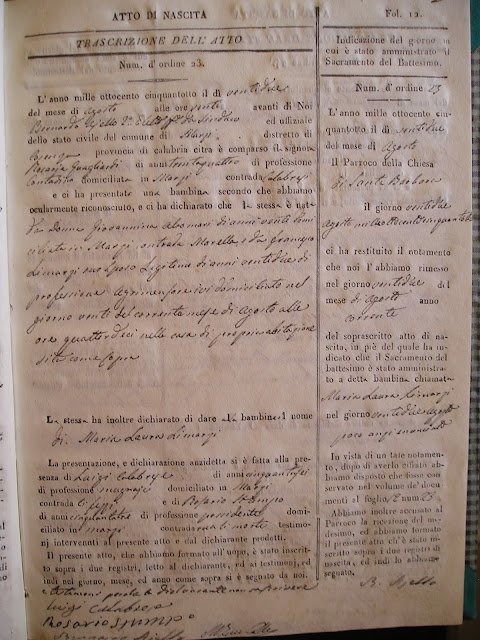 ATTO DI NASCITA
TRASCRIZIONE DELL'ATTO
Num. d'ordine 23.
L'anno mille ottocento cinquantotto il dì ventidue
del mese di Agosto alle ore venti avanti di Noi
Bernardo ed uffiziale
dello stato civile del comune di Margi distretto di
provincia di calabria citra è comparso il signora
Rosaria Guagliardi di anni trentaquattro di professione
Contadina domiciliata in Margi contrada Calabrese
e ci ha presentate una bambina secondo che abbiamo
ocularmente riconosciuto, e ci ha dichiarato che la stessa è nata
da Donna Giovannina di anni venti domi
ciliata in Margi contrada Marella e da Francesco
Limargi suo sposo legitimo di anni ventidue di
professione Agrimensore ivi domiciliato nel
giorno venti del corrente mese di Agosto alle
ore quattordeci nella casa di propria abitazione
sita come sopra
La stessa ha inoltre dichiarato di dare alla bambina il nome
di Maria Laura Limargi
La presentazione, e dichiarazione anzidetta si è fatta alla pre-
senza di Luigi Calabrese di anni cinquantasei
di professione domiciliato in Margi
contrada e di Rosario Stumpo
di anni cinquantatre di professione possidente domi-
ciliato in Margi contrada testimo-
nj intervenuti al presente atto e dal dichiarante prodotti.
Il presente atto, che abbiamo formato all'uopo, è stato inscrit-
to sopra i due registri, letto al dichiarante, ed ai testimonj, ed
indi nel giorno, mese, ed anno come sopra si è segnato da noi.
e testimoni perche la dichiarante non sa scrivere
Luigi Calabrese
Rosario Stumpo
Fol. 12.
Indicazione del giorno in
cui è stato amministrato il
Sacramento del Battesimo.
Num. d'ordine 23
L'anno mille ottocento cin-
quantotto il dì ventidue
del mese di Agosto
Il Parroco della Chiesa
di Santa Barbara
il giorno ventidue
Agosto mille ottocento cinquantotto
ci ha restituito il notamento
che noi l'abbiamo rimesso
nel giorno ventidue del
mese di Agosto anno
corrente
del soprascritto atto di na-
scita, in piè del quale ha in-
dicato che il Sacramento del
battesimo è stato amministra-
to a detta bambina chiamata
Maria Laura Limargi
nel giorno ventidue Agosto
poco anzi enunciato
In vista di un tale notamen-
to, dopo di averlo cifrato ab-
biamo disposto che fosse con-
servato nel volume de' docu-
menti al foglio 2 num 23
Abbiamo inoltre accusato al
Parroco la ricezione del me-
desimo, ed abbiamo formato
il presente atto ch'è stato in-
scritto sopra i due registri di
nascita, ed indi lo abbiamo
segnato.